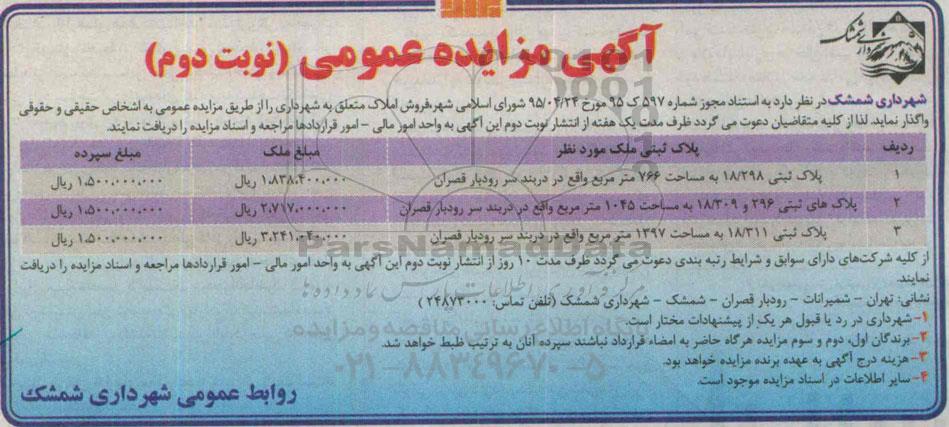 شهرداری شمشک
آگهی مزایده عمومی (نوبت دوم)
شهرداری شمشک در نظر دارد به استناد مجوز شماره ۵۹۷ ک ۹۵ مورخ ۹۵/۰۴/۲۴ شورای اسلامی شهر،فروش املاک متعلق به شهرداری را از طریق مزایده عمومی به اشخاص حقیقی و حقوقی
واگذار نماید. لذا از کلیه متقاضیان دعوت می گردد ظرف مدت یک هفته از انتشار نوبت دوم این آگهی به واحد امور مالی - امور قراردادها مراجعه و اسناد مزایده را دریافت نمایند.
ردیف پلاک ثبتی ملک مورد نظر مبلغ ملک مبلغ سپرده
۱ پلاک ثبتی ۱۸/۲۹۸ به مساحت ۷۶۶ متر مربع واقع در دربند سر رودبار قصران ۱،۸۳۸،۴۰۰،۰۰۰ ریال ۱،۵۰۰،۰۰۰،۰۰۰ ریال
۲ پلاک های ثبتی ۲۹۶ و ۱۸/۳۰۹ به مساحت ۱۰۴۵ متر مربع واقع در دربند سر رودبار قصران ۲،۷۱۷،۰۰۰،۰۰۰ ریال ۱،۵۰۰،۰۰۰،۰۰۰ ریال
۳ پلاک ثبتی ۱۸/۳۱۱ به مساحت ۱۳۹۷ متر مربع واقع در دربند سر رودبار قصران ۳،۲۴۱،۰۴۰،۰۰۰ ریال ۱،۵۰۰،۰۰۰،۰۰۰ ریال
ParsNamadData
از کلیه شرکت‌های دارای سوابق و شرایط رتبه بندی دعوت می گردد ظرف مدت ۱۰ روز از انتشار نوبت دوم این آگهی به واحد امور مالی - امور قراردادها مراجعه و اسناد مزایده را دریافت
نمایند.
مرکز فرآوری اطلاعات پارس نماد داده ها
نشانی: تهران - شمیرانات - رودبار قصران - شمشک - شهرداری شمشک (تلفن تماس: ۲۴۸۷۳۰۰۰ )
۱- شهرداری در رد یا قبول هر یک از پیشنهادات مختار است.
پایگاه اطلاع رسانی مناقصه و مزایده
۲- برندگان اول، دوم و سوم مزایده هرگاه حاضر به امضاء قرارداد نباشند سپرده آنان به ترتیب ظبط خواهد شد.
۳- هزینه درج آگهی به عهده برنده مزایده خواهد بود.
۰۲۱-۸۸۳۴۹۶۷۰-۵
۴- سایر اطلاعات در اسناد مزایده موجود است.
روابط عمومی شهرداری شمشک